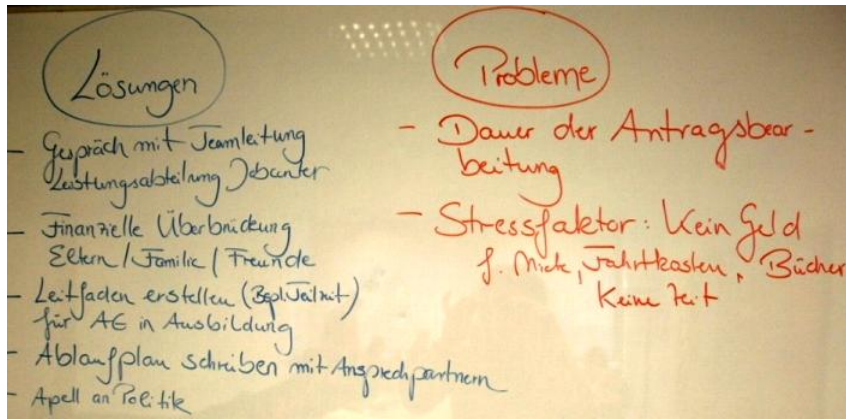 Lösungen
- Gespräch mit Teamleitung
Leistungsabteilung Jobcenter
- Finanzielle Überbrückung
Eltern / Familie / Freunde
- Leitfaden erstellen
für AE in Ausbildung
- Ablaufplan schreiben mit Ansprechpartnern
- Apell an Politik
Probleme
- Dauer der Antragsbear-
beitung
- Stressfaktor: Kein Geld
f. Miete, Fahrtkosten, Bücher
Keine Zeit